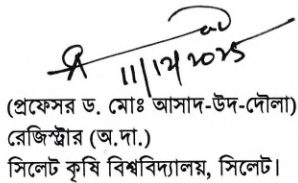 11/12/2025
(প্রফেসর ড. মোঃ আসাদ-উদ-দৌলা)
রেজিস্ট্রার (অ.দা.)
সিলেট কৃষি বিশ্ববিদ্যালয়, সিলেট।